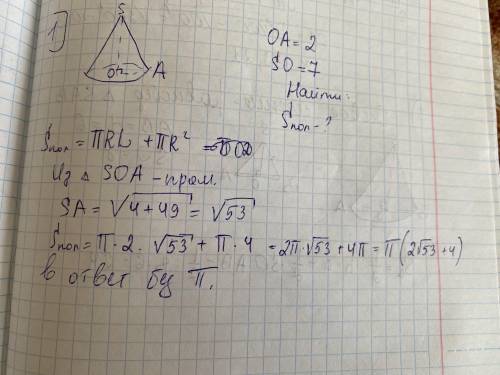 1)
S
O R A
OA = 2
SO = 7
Найти:
Sпол - ?
Sпол = πRL + πR²
Из △ SOA - прям.
SA = √4+49 = √53
Sпол = π·2·√53 + π·4 = 2π·√53 + 4π = π(2√53+4)
в ответ без π.